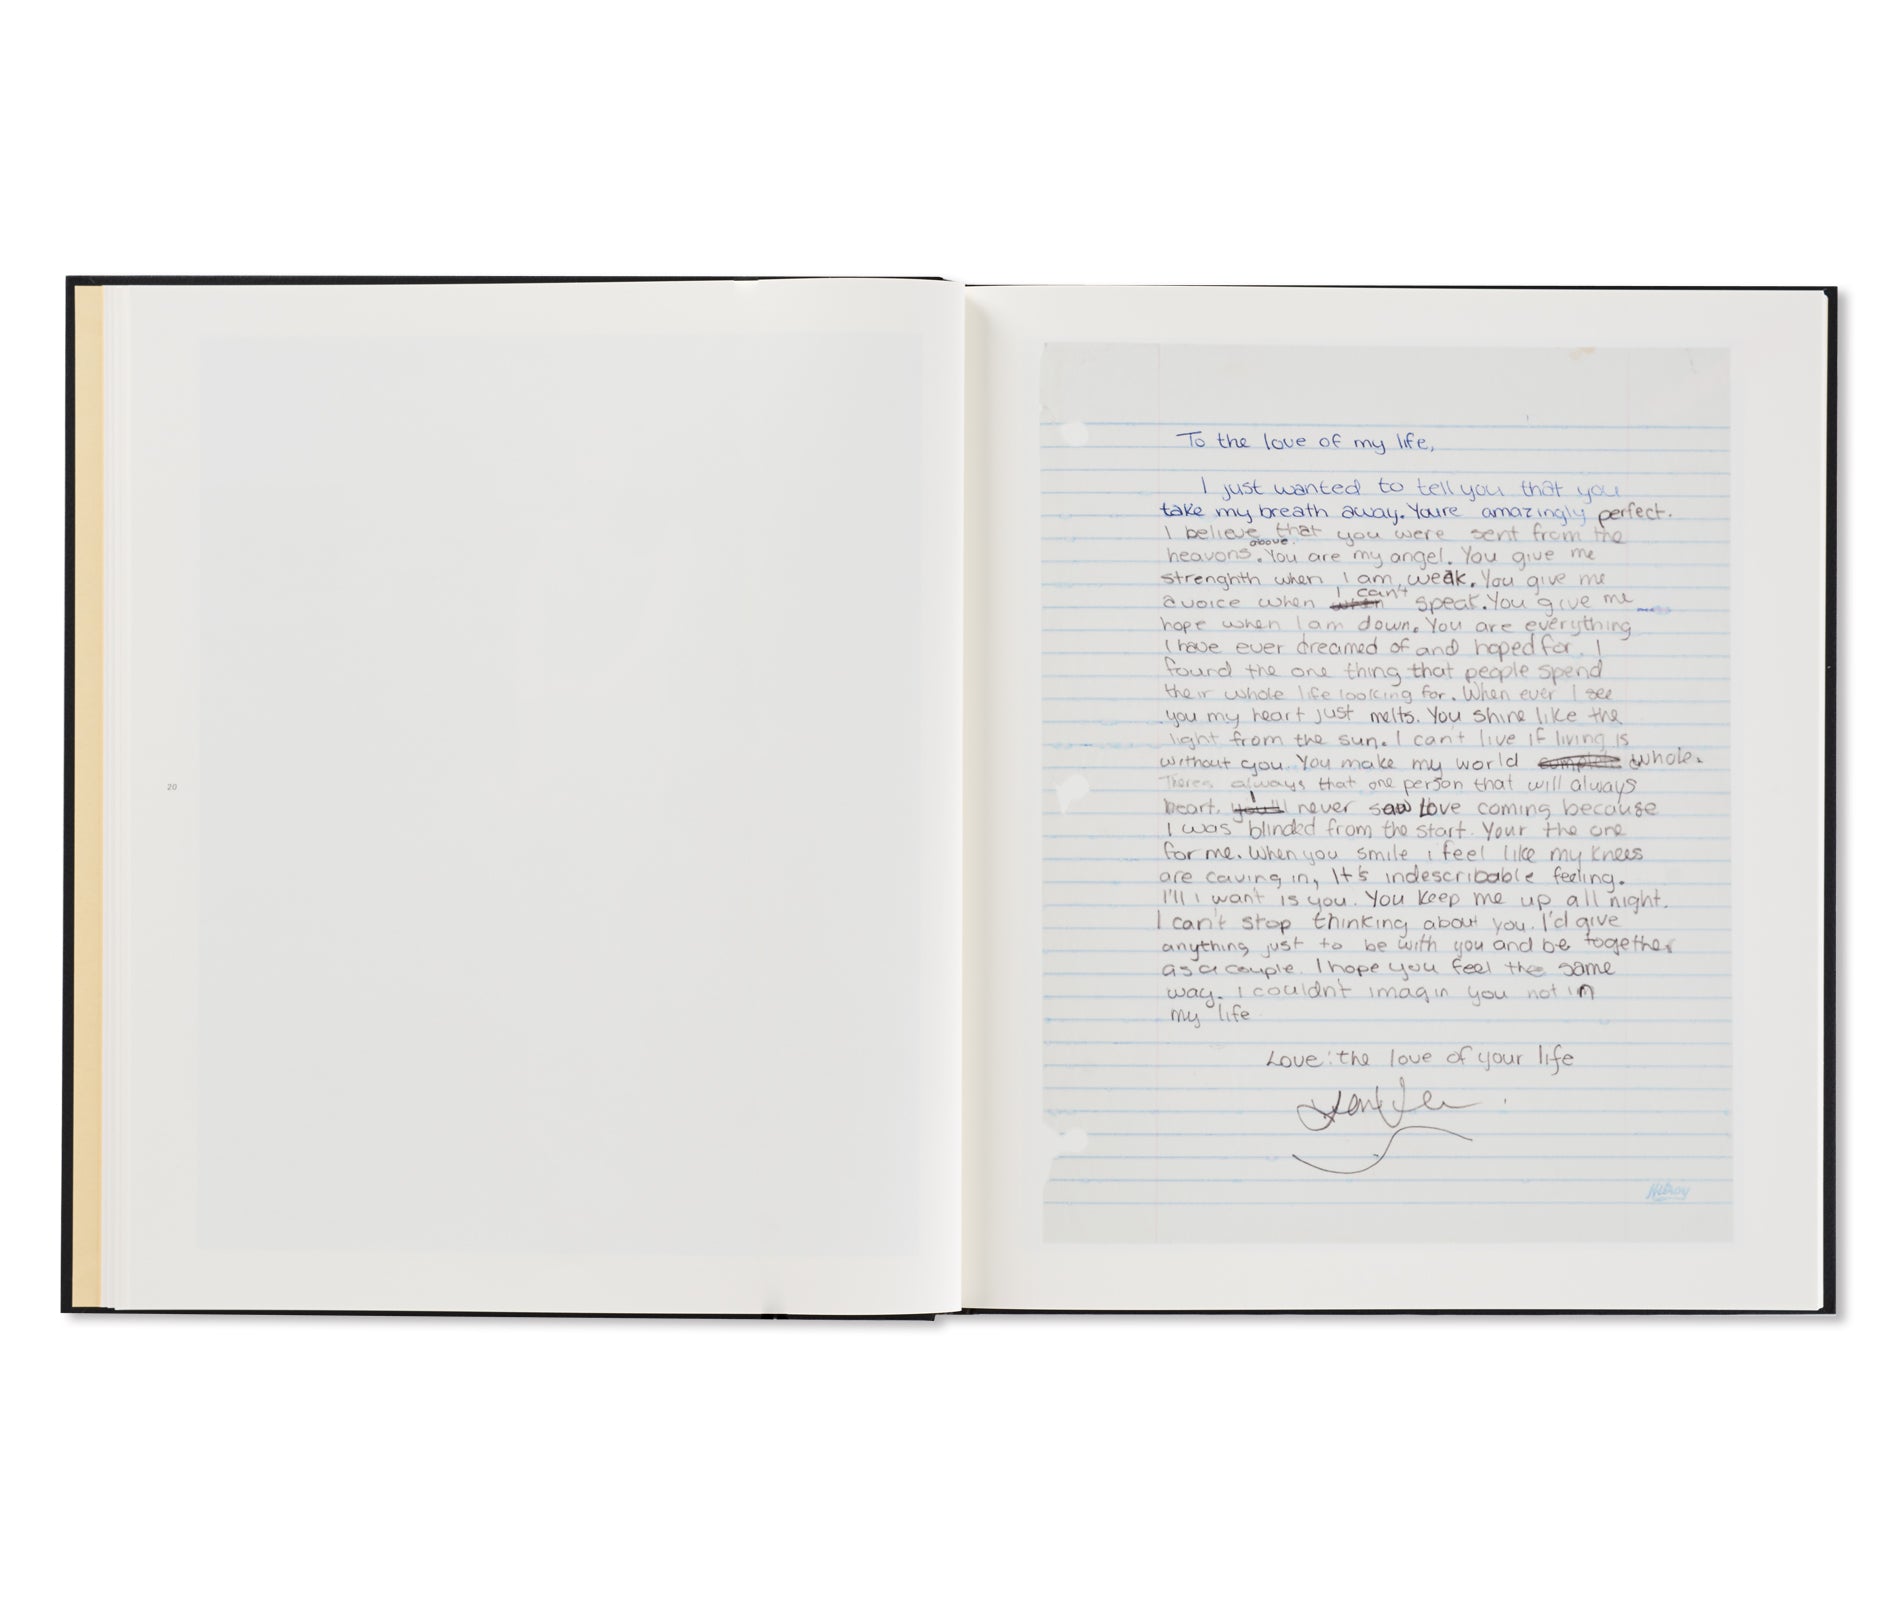 20
To the love of my life,
I just wanted to tell you that you
take my breath away. Youre amazingly perfect.
I believe that you were sent from the
heavons above. You are my angel. You give me
strenghth when I am weak. You give me
a voice when when I can't speak. You give me
hope when I am down. You are everything
I have ever dreamed of and hoped for. I
found the one thing that people spend
their whole life looking for. When ever I see
you my heart just melts. You shine like the
light from the sun. I can't live if living is
without you. You make my world complete whole.
Theres always that one person that will always
heart. you'll I never saw love coming because
I was blinded from the start. Your the one
for me. When you smile i feel like my knees
are caving in, It's indescribable feeling.
I'll i want is you. You keep me up all night.
I can't stop thinking about you. I'd give
anything just to be with you and be together
as a couple. I hope you feel the same
way. I couldn't imagin you not in
my life
Love: the love of your life
Hilroy